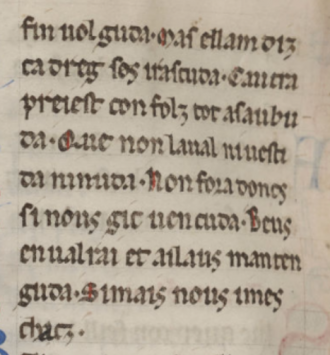 fin uol guda·Mas ellam diz
ca dreg sos irascuda·Cauera
preiest con folz tot asaubu
da·Quie non laual niuesti
da ninuda·Non fora doncs
si nous gic uencuda·Beus
enualrai et ailaus manten
guda·Simais nous imes
chatz·